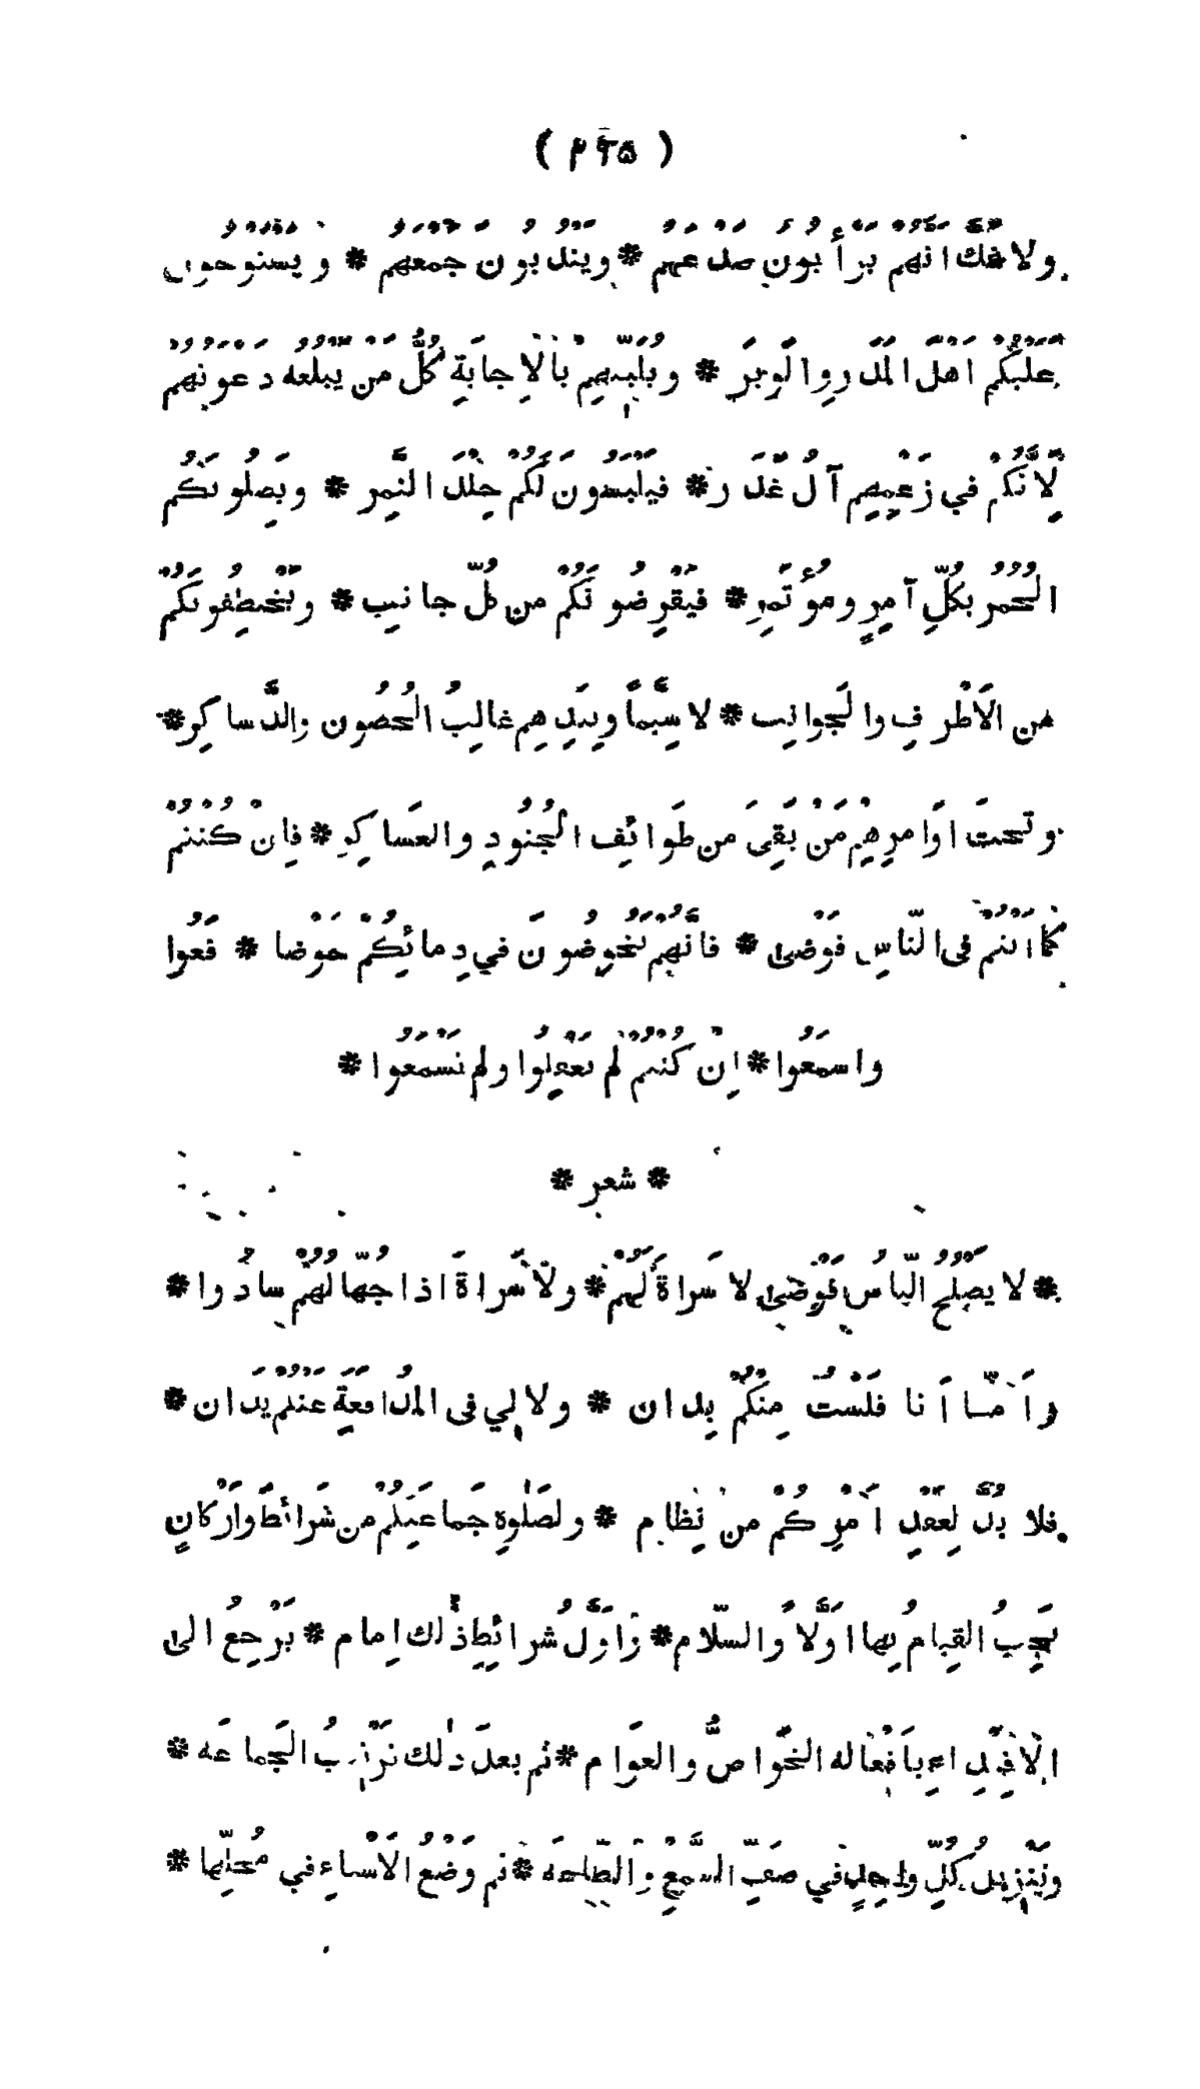 ( ٢٦٥ )
ولا شك انهم يرأبون صدعهم * ويندبون جمعهم * ويستوحون
عليكم اهل المدر والوبر * ويلبيهم بالاجابة كل من يبلغه دعوتهم
لانكم في زعمهم آل غدر * فيلبسون لكم جلد النمر * ويصلونكم
الحمر بكل آمر ومؤتمر * فيقرضونكم من كل جانب * ويخطفونكم
من الاطرف والجوانب * لا سيما وبيدهم غالب الحصون والدساكر *
وتحت اوامرهم من بقي من طوائف الجنود والعساكر * فان كنتم
كما انتم في الناس فوضى * فانهم يخوضون في دمائكم خوضا * فعوا
واسمعوا * ان كنتم لم تعقلوا ولم تسمعوا *
* شعر *
* لا يصلح الناس فوضى لا سراة لهم * ولا سراة اذا جهالهم سادوا *
وأما أنا فلست منكم بدان * ولا لي في المدافعة عنكم يدان *
فلا بد لعقد امركم من نظام * ولصلوة جماعتكم من شرائط واركان
يجب القيام بها اولا والسلام * واول شرائط ذلك امام * يرجع الى
الاقتداء بافعاله الخواص والعوام * ثم بعد ذلك ترتيب الجماعه *
وتنزيل كل واحد في صف السمع والطاعة * ثم وضع الاشياء في محلها *